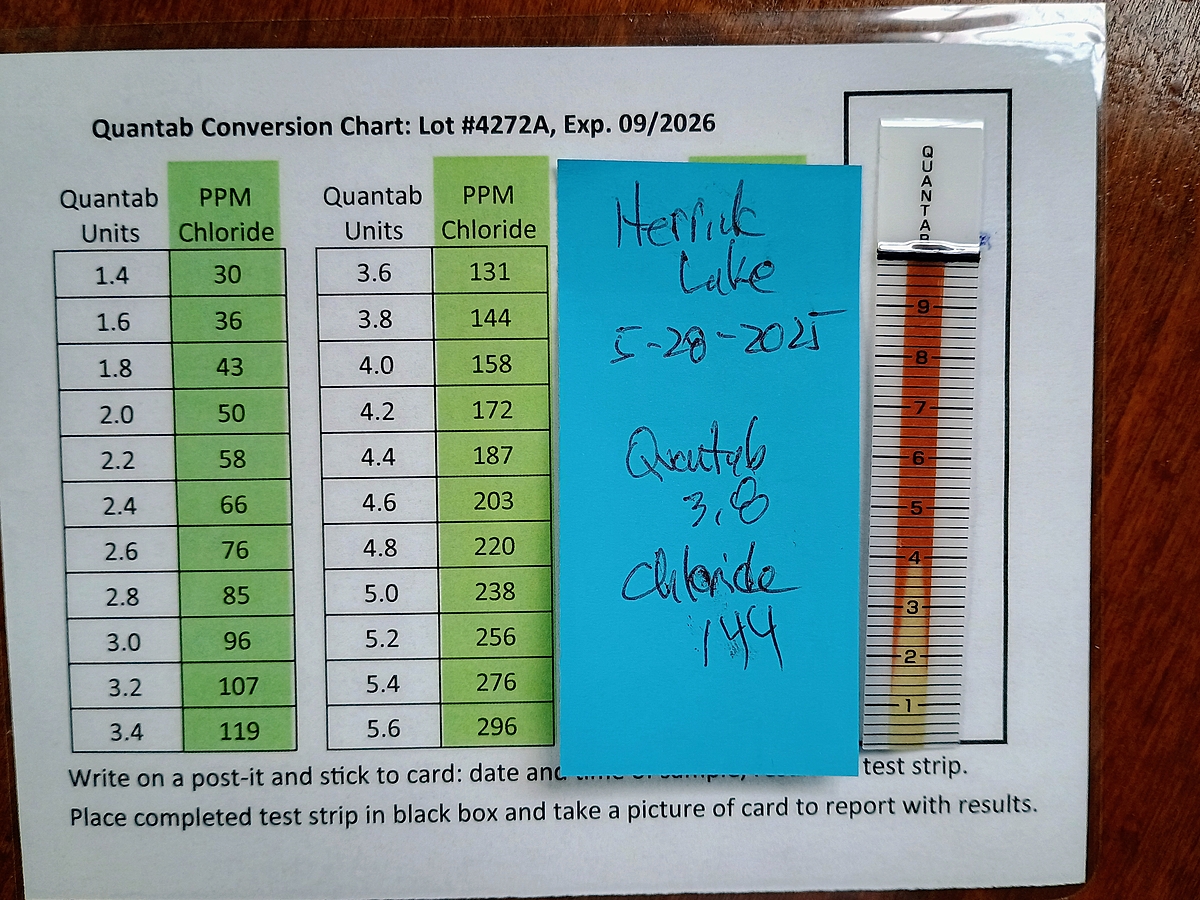 Quantab Conversion Chart: Lot #4272A, Exp. 09/2026
Quantab Units PPM Chloride Quantab Units PPM Chloride
1.4 30 3.6 131
1.6 36 3.8 144
1.8 43 4.0 158
2.0 50 4.2 172
2.2 58 4.4 187
2.4 66 4.6 203
2.6 76 4.8 220
2.8 85 5.0 238
3.0 96 5.2 256
3.2 107 5.4 276
3.4 119 5.6 296
Herrick
Lake
5-28-2025
Quantab
3.8
Chloride
144
QUANTAB
9
8
7
6
5
4
3
2
1
Write on a post-it and stick to card: date and test strip.
Place completed test strip in black box and take a picture of card to report with results.